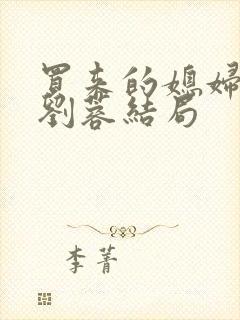 買來的媳婦
劉蓉結局
李菁